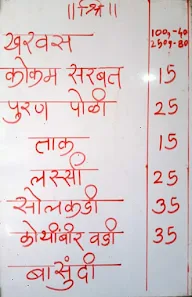 ||श्रि||
खरवस 100g-40
250g-80
कोकम सरबत 15
पुरण पोळी 25
ताक 15
लस्सी 25
सोलकडी 35
कोथींबीर वडी 35
बासुंदी